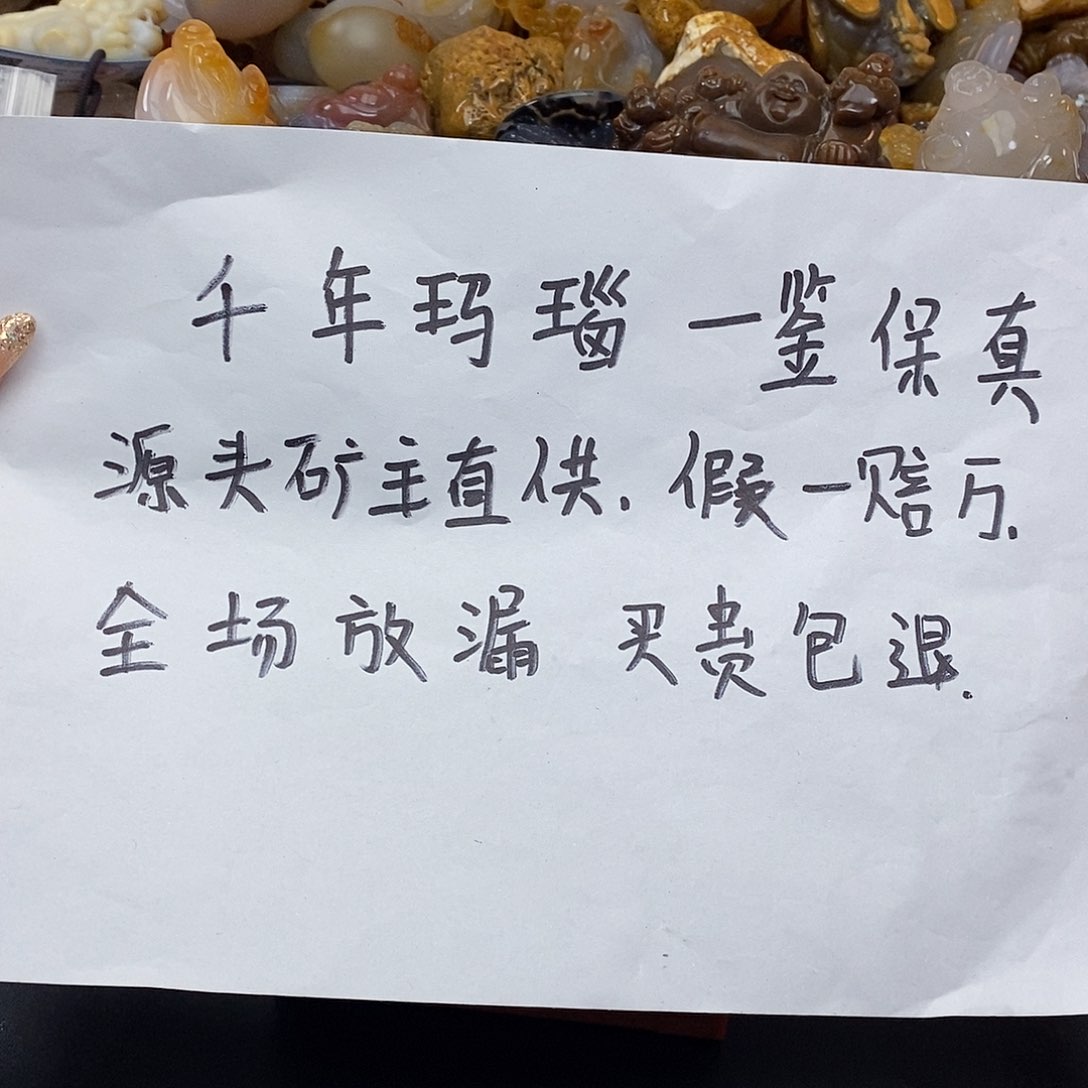 千年玛瑙 一鉴保真
源头矿主直供. 假一赔万.
全场放漏 买贵包退.